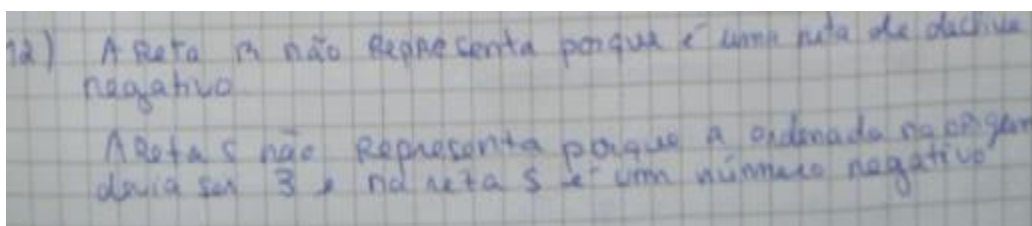 12) A Reta r não Representa porque é uma reta de declive
negativo
A Reta s não Representa porque a ordenada na origem
devia ser 3 e na reta s é um número negativo